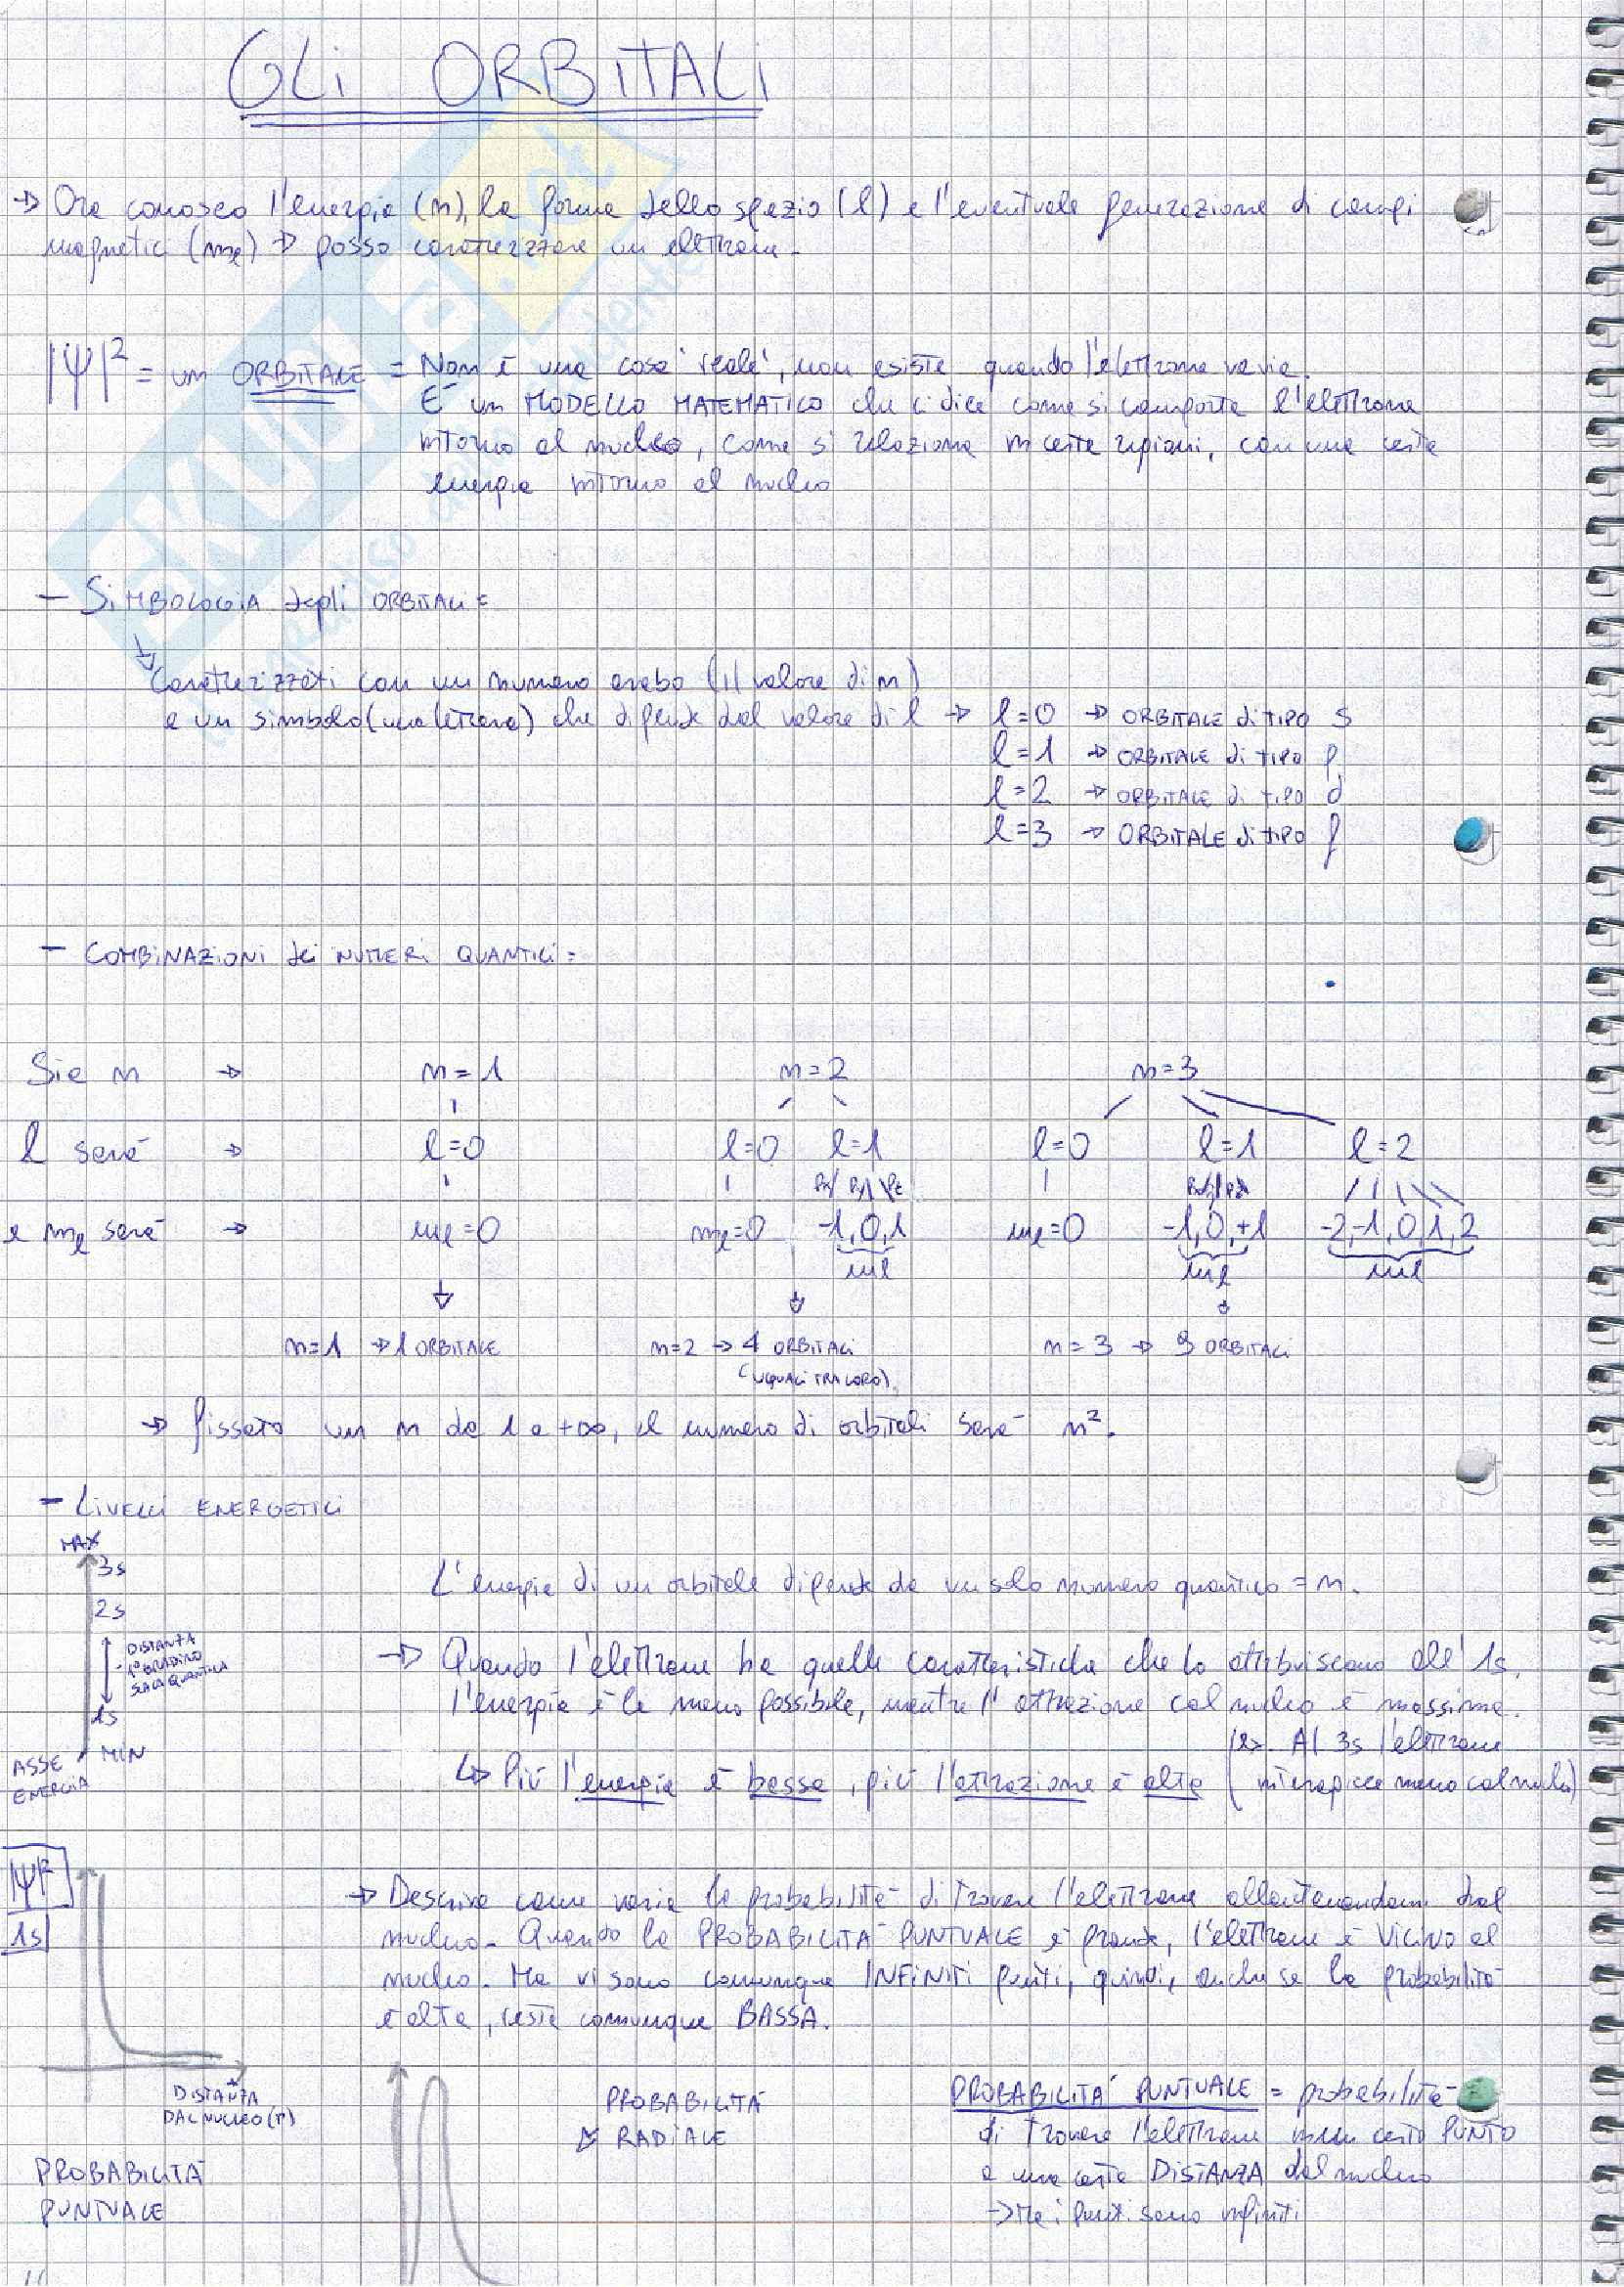 GLI ORBITALI
→ Ora conosco l'energia (n), la forma dello spazio (l) e l'eventuale generazione di campi
magnetici (ml) → posso caratterizzare un elettrone.
|Ψ|² = un ORBITALE = Non è una cosa 'reale', non esiste quando l'elettrone va via.
E' un MODELLO MATEMATICO che ci dice come si comporta l'elettrone
intorno al nucleo, come si relaziona in certe regioni, con una certa
energia intorno al nucleo
- SIMBOLOGIA degli ORBITALI =
Caratterizzati con un numero arabo (il valore di n)
e un simbolo (una lettera) che dipende dal valore di l → l=0 → ORBITALE di TIPO s
l=1 → ORBITALE di TIPO p
l=2 → ORBITALE di TIPO d
l=3 → ORBITALE di TIPO f
- COMBINAZIONI dei NUMERI QUANTICI =
Sia n → n=1 n=2 n=3
l sarà → l=0 l=0 l=1 l=0 l=1 l=2
Px/ Py| \Pz
e ml sarà → ml=0 ml=0 -1,0,1 ml=0 -1,0,+1 -2,-1,0,1,2
ml ml ml
n=1 → 1 ORBITALE n=2 → 4 ORBITALI n=3 → 9 ORBITALI
(UGUALI TRA LORO)
→ fissato un n da 1 a +∞, il numero di orbitali sarà n².
- LIVELLI ENERGETICI
MAX
3s
L'energia di un orbitale dipende da un solo numero quantico = n.
2s
DISTANZA
1° GRADINO
SCALA QUANTICA
1s
ASSE ENERGIA
MIN
→ Quando l'elettrone ha quelle caratteristiche che lo attribuiscono all'1s,
l'energia è la meno possibile, mentre l'attrazione col nucleo è massima.
Al 3s l'elettrone
↳ Più l'energia è bassa, più l'attrazione è alta ( interagisce meno col nucleo)
|Ψ|²
1s
→ Descrive come varia la probabilità di trovare l'elettrone allontanandomi dal
nucleo. Quando la PROBABILITA' PUNTUALE è grande, l'elettrone è VICINO al
nucleo. Ma vi sono comunque INFINITI punti, quindi, anche se la probabilità
è alta, resta comunque BASSA.
DISTANZA
DAL NUCLEO (r)
PROBABILITÀ
PUNTUALE
PROBABILITÀ
RADIALE
PROBABILITA' PUNTUALE = probabilità
di trovare l'elettrone in un certo PUNTO
a una certa DISTANZA dal nucleo
→ Ma i punti sono infiniti